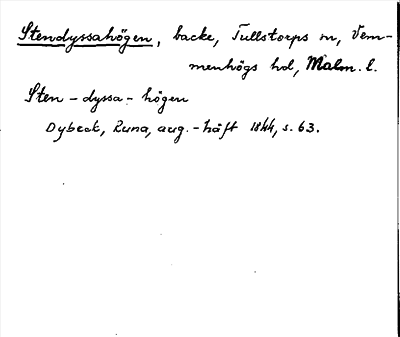 Stendyssahögen, backe, Tullstorps sn, Vem-
menhögs hd, Malm. l.
Sten - dyssa - högen
Dybeck, Runa, aug.-häft 1844, s. 63.